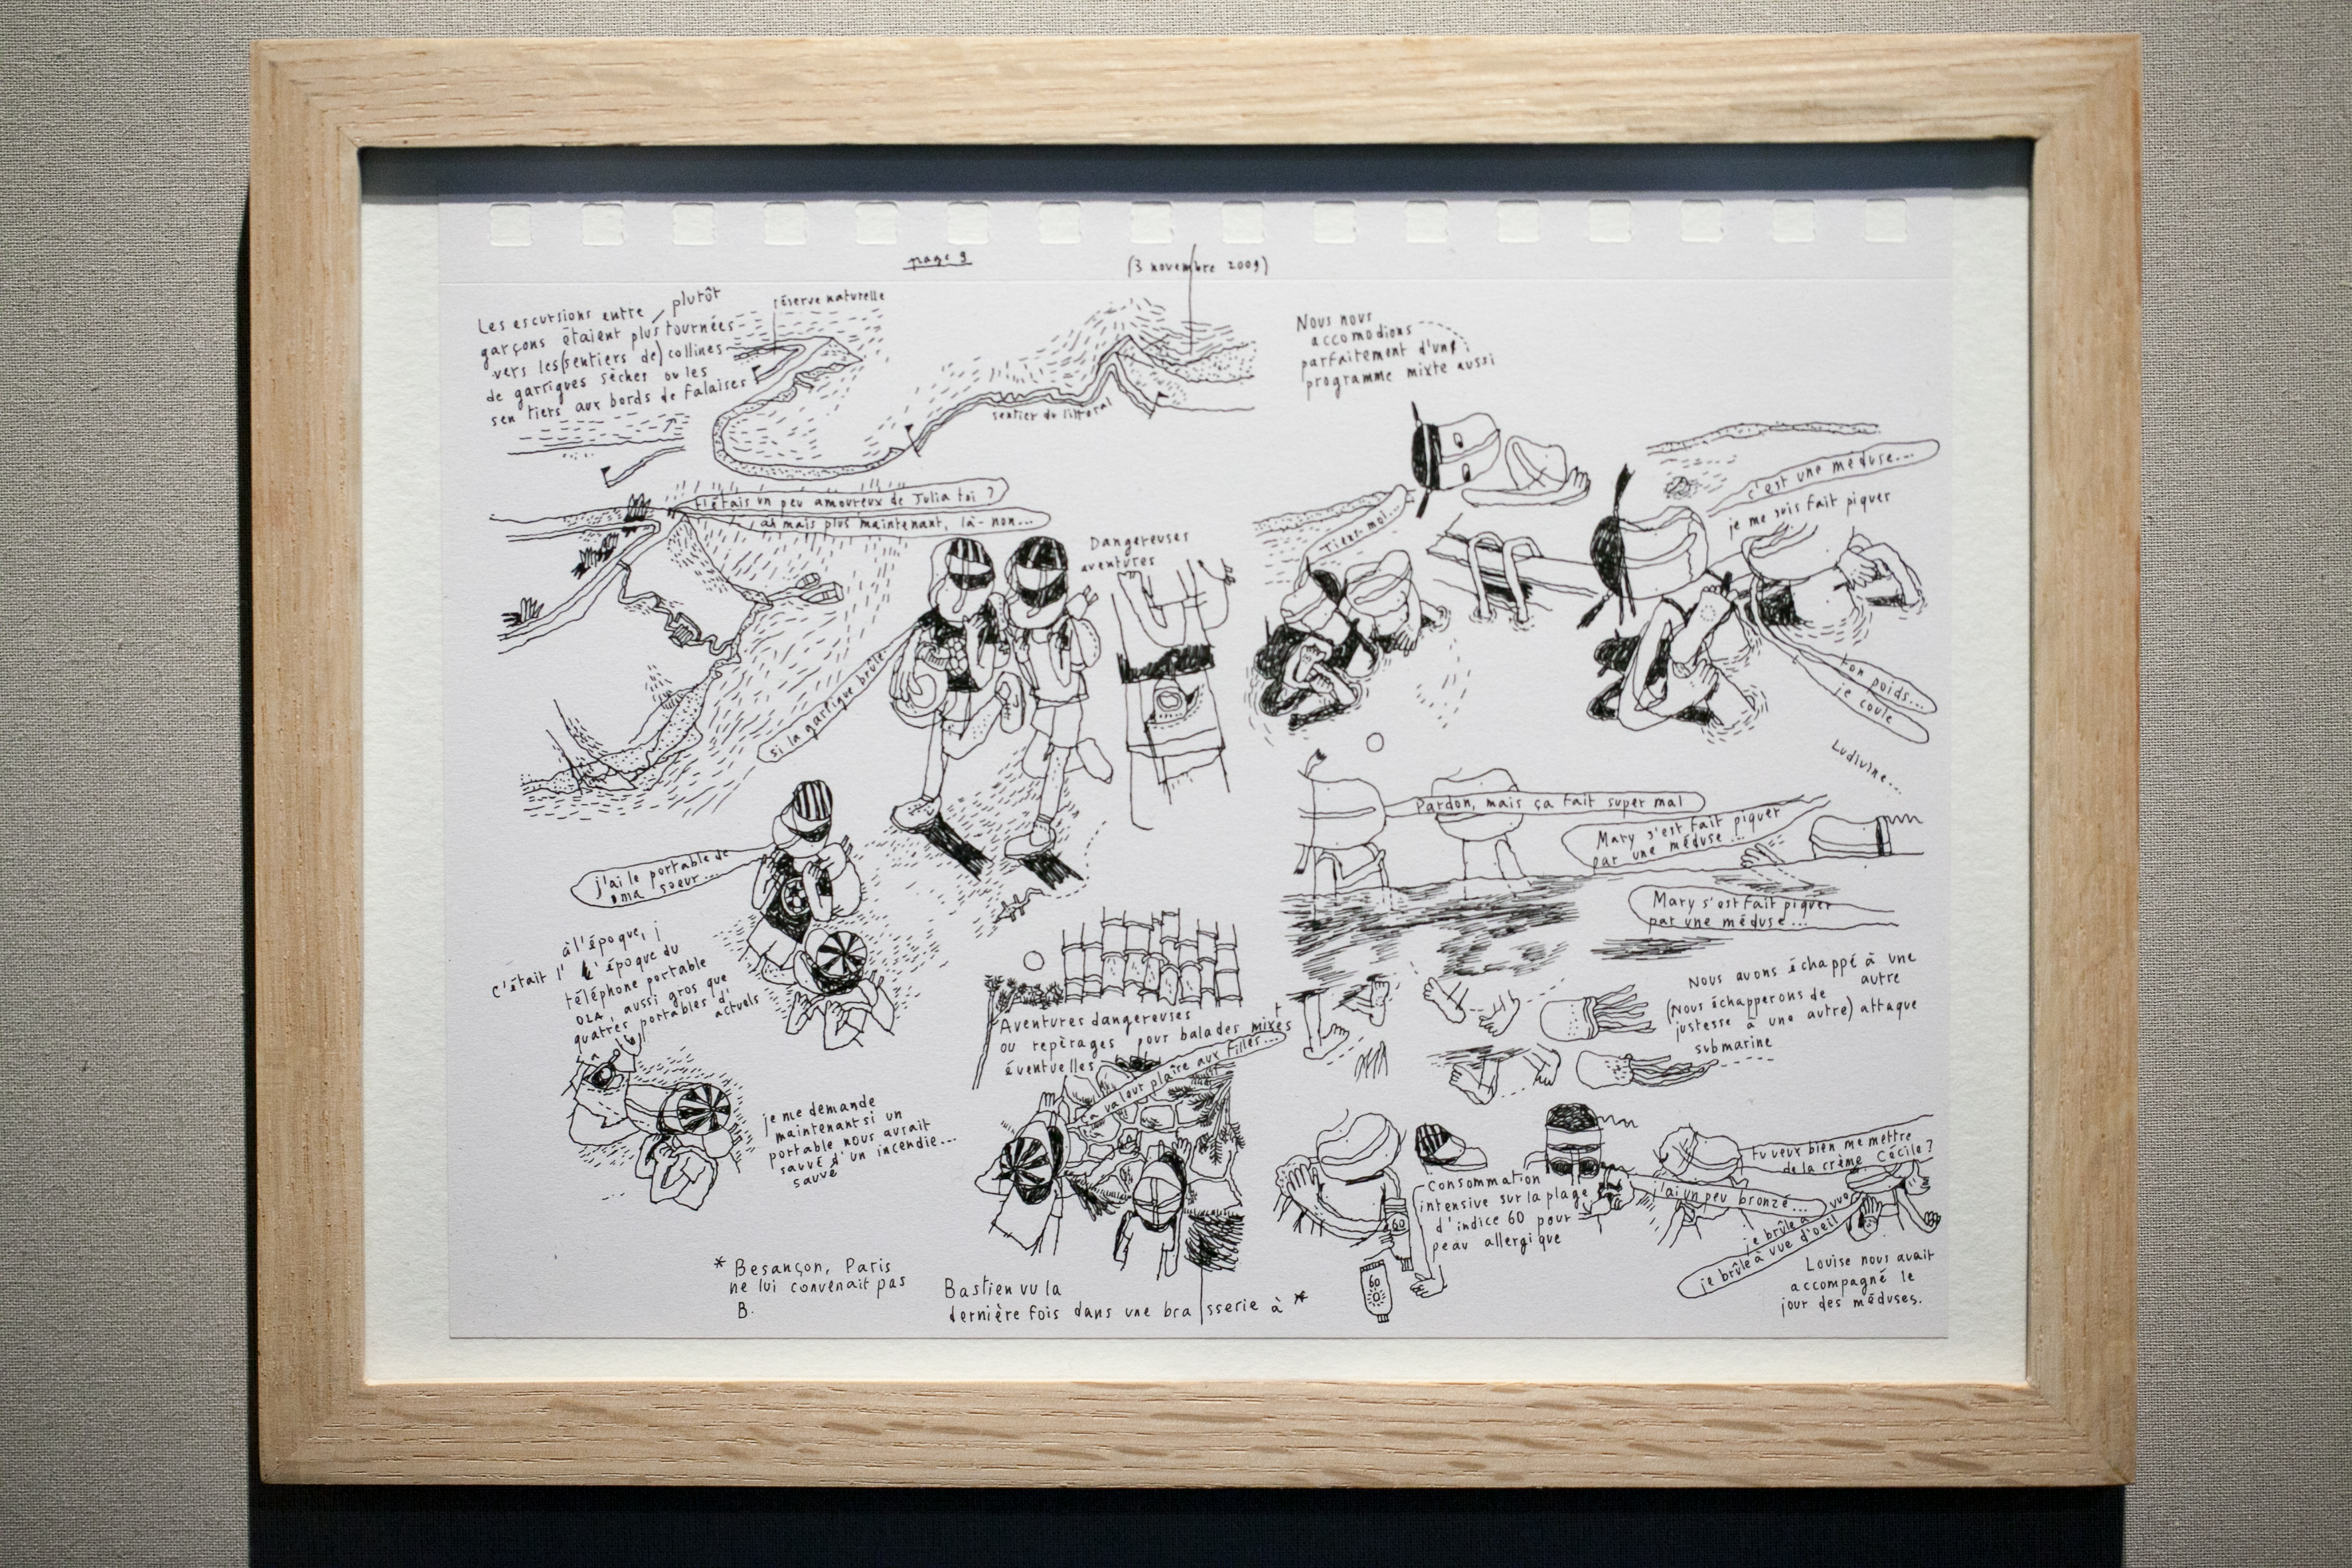 page 9
(3 novembre 2009)
Les escursions entre plutôt
garçons étaient plus tournées
vers les (sentiers de) collines
de garrigues sèches ou les
sentiers aux bords de falaises
réserve naturelle
sentier du littoral
t'étais un peu amoureux de Julia toi ?
ah mais plus maintenant, là-non...
Dangereuses
aventures
si la garrigue brûle.
j'ai le portable de
ma soeur...
à l'époque,
c'était l' l'époque du
téléphone portable
OLA, aussi gros que
quatres portables d'
actuels
je me demande
maintenant si un
portable nous aurait
sauvé d'un incendie...
sauvé
Aventures dangereuses
ou repèrages pour balades mixtes
éventuelles
ça va leur plaire aux filles...
* Besançon, Paris
ne lui convenait pas
B.
Bastien vu la
dernière fois dans une brasserie à *
Nous nous
accomodions
parfaitement d'un
programme mixte aussi
Tiens-moi...
c'est une méduse...
je me suis fait piquer
ton poids...
je coule
Ludivine...
Pardon, mais ça fait super mal
Mary s'est fait piquer
par une méduse...
Mary s'est fait piquer
par une méduse...
Nous avons échappé à une
autre
(Nous échapperons de
justesse à une autre) attaque
submarine
Consommation
intensive sur la plage
d'indice 60 pour
peau allergique
60
60
tu veux bien me mettre
de la crème Cécile ?
j'ai un peu bronzé...
je brûle à vue
je brûle à vue d'oeil
Louise nous avait
accompagné le
jour des méduses.